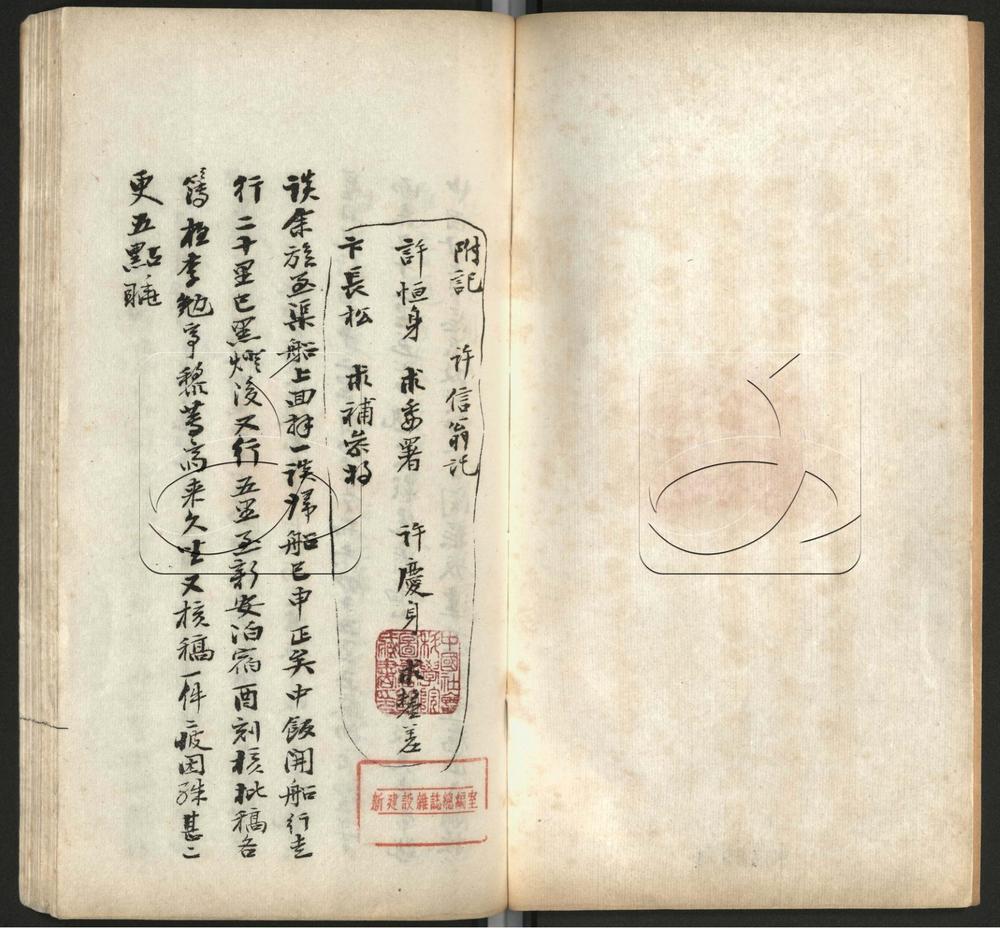 附記 許信翁託
許恒身 求委署 許慶身 求釐差
卞長松 求補叅將
談余旋至渠船上回拜一談歸船已申正矣中飯開船行走
行二十里已黑燈後又行五里至新安泊宿酉刻核批稿各
簿極李勉亭黎蓴齋來久坐又核稿一件疲困殊甚二
更五點睡
中國社會科學院圖書館藏書印
新建設雜誌總編室